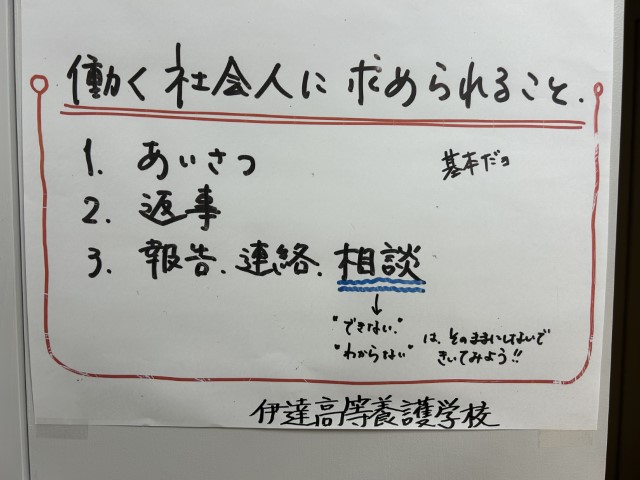 働く社会人に求められること.
1. あいさつ
基本だョ
2. 返事
3. 報告.連絡.相談
↓
"できない."
"わからない"
は、そのままにしないで
きいてみよう!!
伊達高等養護学校